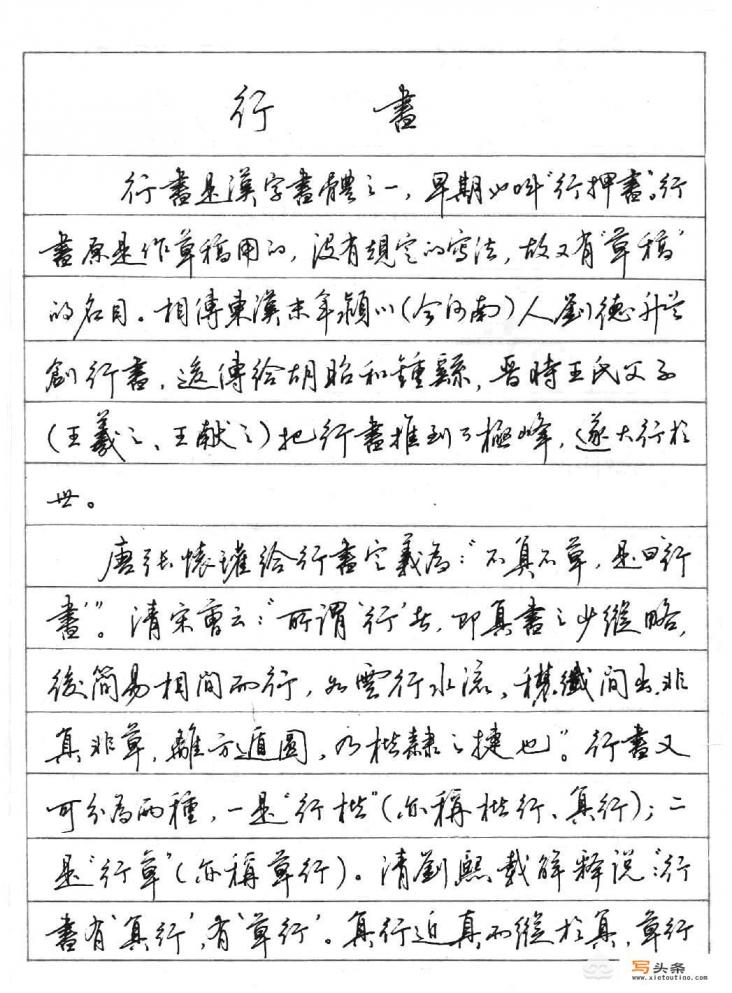 行書
行書是漢字書體之一，早期也叫“行押書”。行
書原是作草稿用的，没有規定的寫法，故又有“草稿”
的名目。相傳東漢末年潁川(今河南)人劉德升首
創行書，後傳給胡昭和鍾繇，晋時王氏父子
(王羲之、王献之)把行書推到了極峰，遂大行於
世。
唐張懷瓘給行書定義為：“不真不草，是曰‘行
書’”。清宋曹云：“所謂‘行’者，即真書之少縱略，
後簡易相間而行，如雲行水流，穠纖間出，非
真非草，離方遁圓，乃楷隸之捷也”。行書又
可分為兩種，一是“行楷”(亦稱楷行、真行)；二
是“行草”(亦稱草行)。清劉熙載解释说：“行
書有‘真行’，有‘草行’。真行近真而縱於真，草行
写头条
www.xietoutiao.com